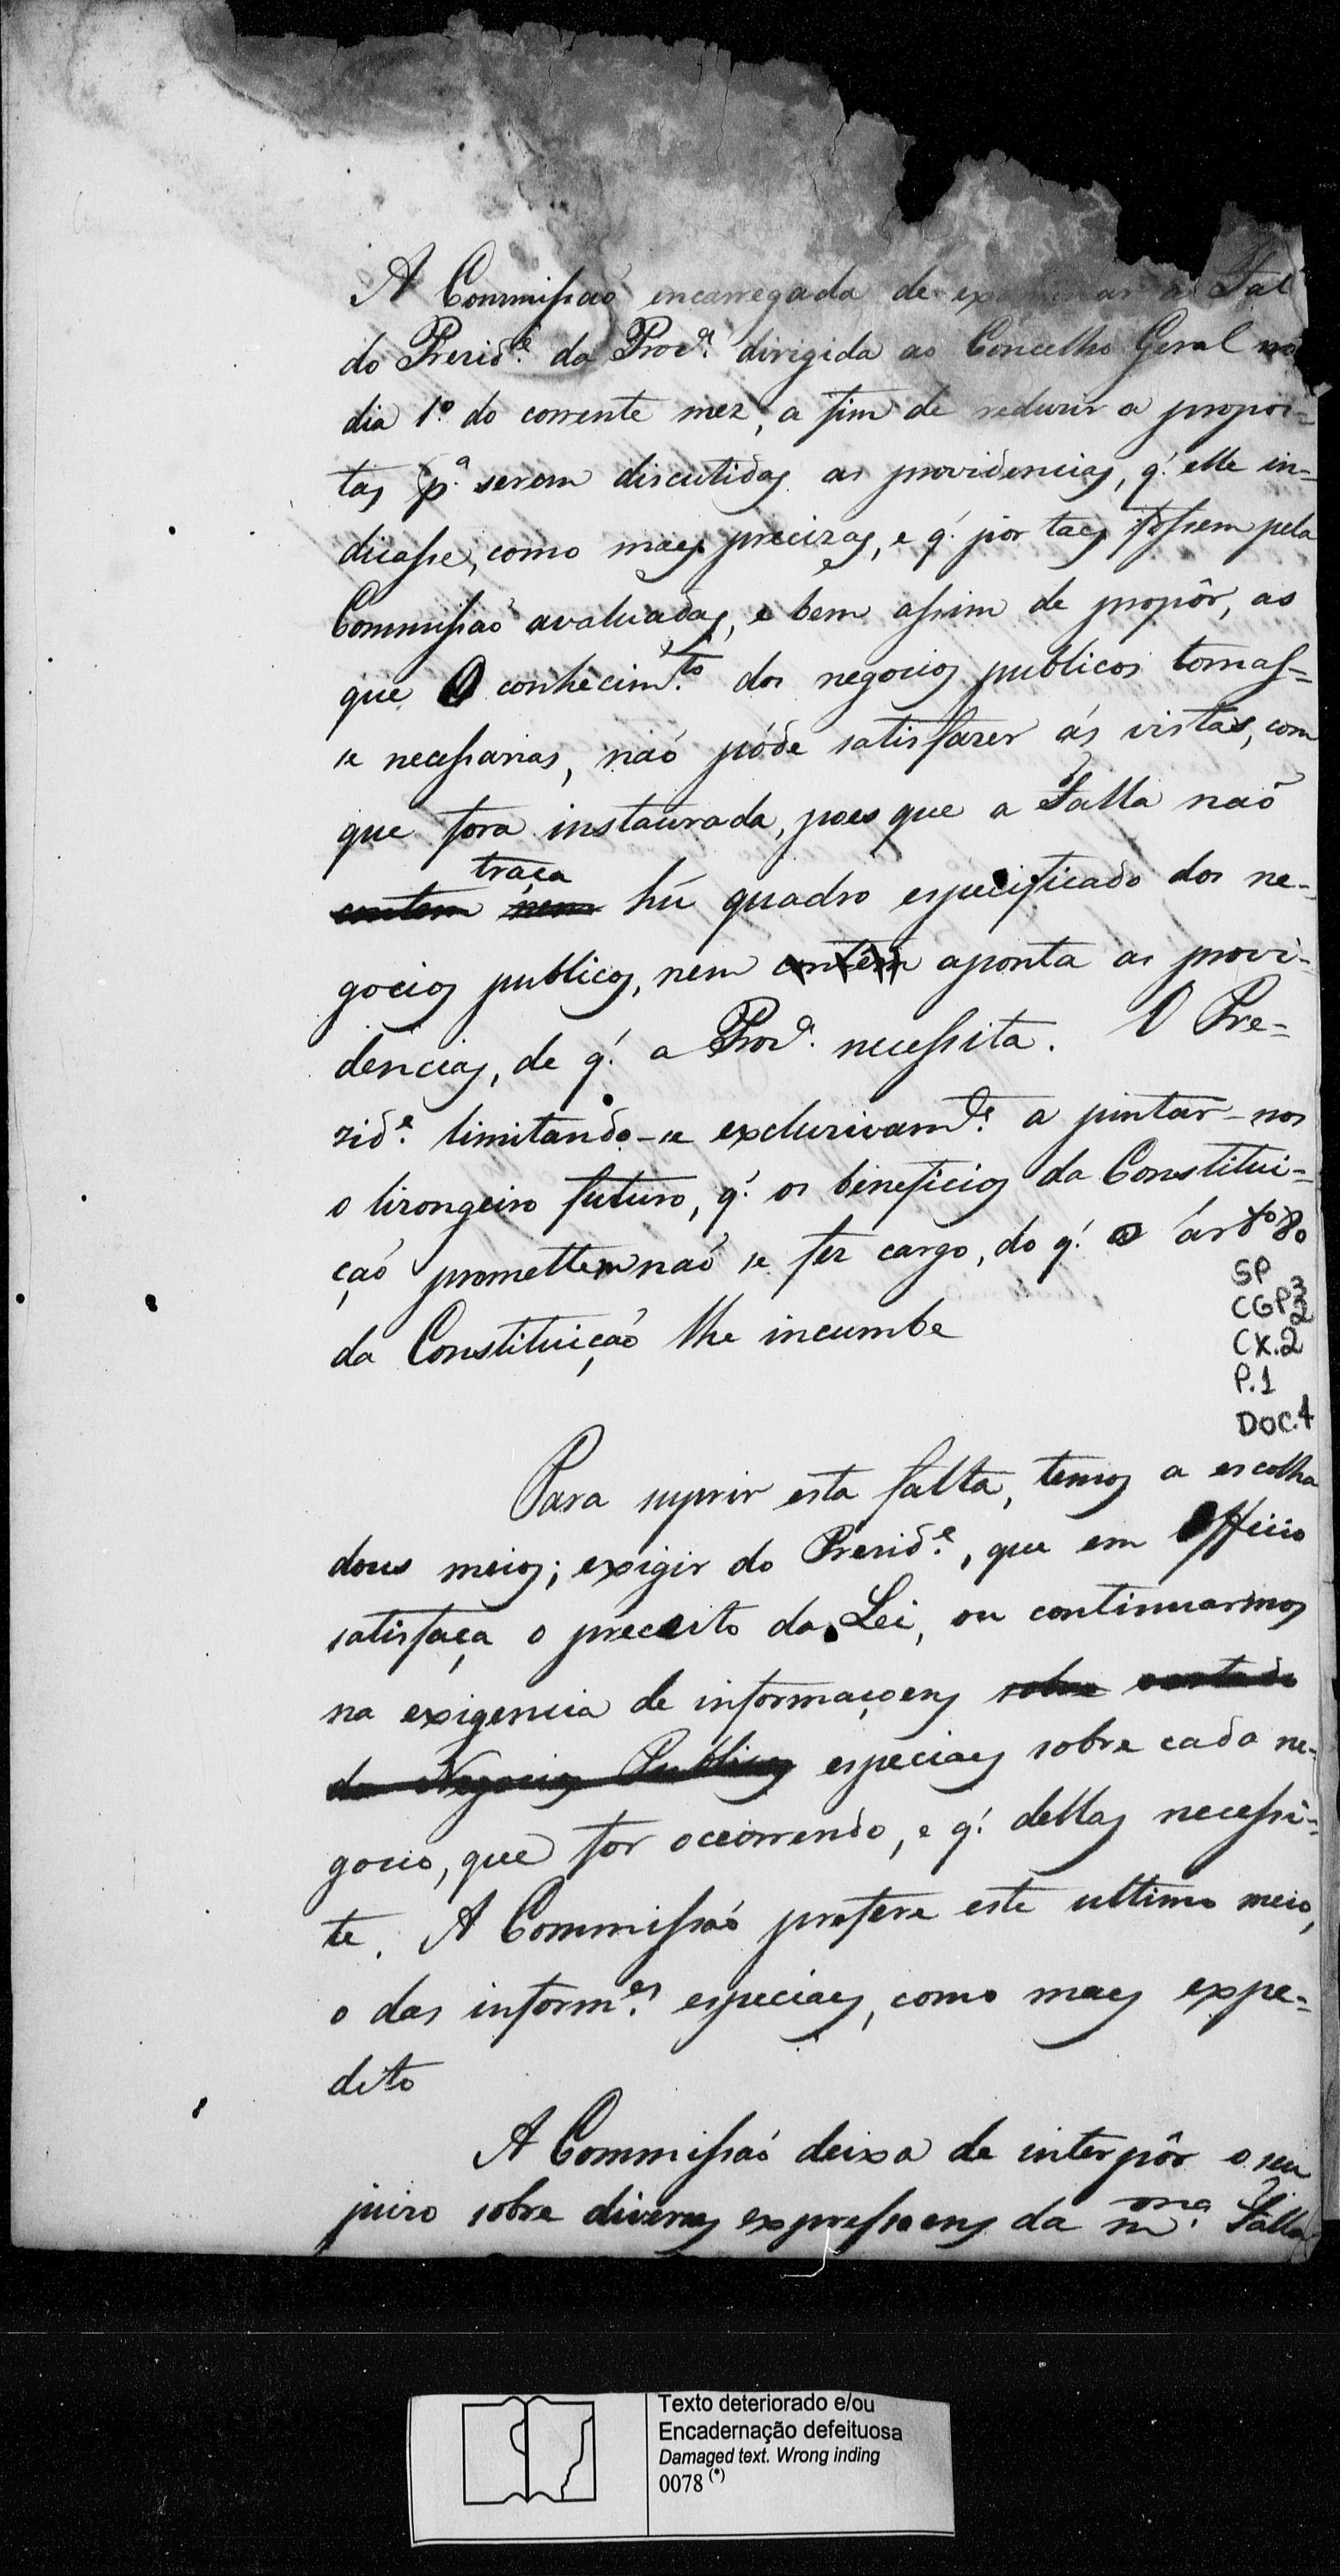 A Commissaõ encarregada de examinar a Fal
do Prezid.e da Prov.a dirigida ao Concelho Geral no
dia 1º do corrente mez, a fim de reduzir a propos-
tas p.a serem discutidas as providencias, q.' elle in-
dicasse, como maes precizas, e q.' por taes fossem pela
Commissaõ avaluadas, e bem assim de propôr, as
que o conhecim.to dos negocios publicos tornas-
se necessarias, naõ póde satisfazer ás vistas, com
que fora instaurada, poes que a Falla naõ
traça
contem nem hú quadro especificado dos ne-
gocios publicos, nem contêm aponta as provi-
dencias, de q.' a Prov.a necessita. O Pre-
zid.e limitando-se excluzivam.te a pintar-nos
o lizongeiro futuro, q.' os beneficios da Constitui-
çaõ promettem naõ se fez cargo, do q.' o árt.o 80
da Constituiçaõ lhe incumbe
SP
CGP3
2
CX.2
P.1
DOC.4
Para suprir esta falta, temos a escolha
dous meios; exigir do Prezid.e, que em Officio
satisfaça o preceito da Lei, ou continuarmos
na exigencia de informaçoens sobre o estado
do Negocios Publicos especiaes sobre cada ne-
gocio, que for occorrendo, e q.' dellas necessi-
te. A Commissaõ prefere este ultimo meio,
o das inform.es especiaes, como maes expe-
dito
A Commissaõ deixa de interpôr o seu
juizo sobre diversas expressoens da m.ma Falla
Texto deteriorado e/ou
Encadernação defeituosa
Damaged text. Wrong inding
0078 (*)